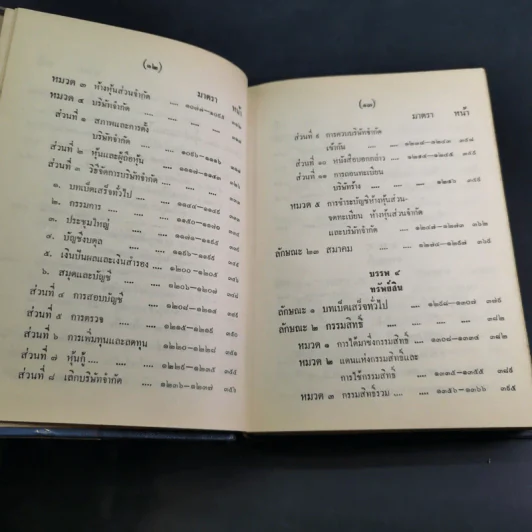 (๑๒)
มาตรา หน้า
หมวด ๓ ห้างหุ้นส่วนจำกัด
หมวด ๔ บริษัทจำกัด
ส่วนที่ ๑ สภาพและการตั้ง
บริษัทจำกัด .... ๑๐๙๖–๑๑๑๖
ส่วนที่ ๒ หุ้นและผู้ถือหุ้น .... ๑๑๑๗–๑๑๔๓
ส่วนที่ ๓ วิธีจัดการบริษัทจำกัด
๑. บทเบ็ดเสร็จทั่วไป .... ๑๑๔๔–๑๑๔๙
๒. กรรมการ .... .... ๑๑๕๐–๑๑๗๐
๓. ประชุมใหญ่ .... ๑๑๗๑–๑๑๙๕
๔. บัญชีงบดุล .... ๑๑๙๖–๑๑๙๙
๕. เงินปันผลและเงินสำรอง .... ๑๒๐๐–๑๒๐๕
๖. สมุดและบัญชี .... ๑๒๐๖–๑๒๐๗
ส่วนที่ ๔ การสอบบัญชี .... ๑๒๐๘–๑๒๑๔
ส่วนที่ ๕ การตรวจ .... .... ๑๒๑๕–๑๒๑๙
ส่วนที่ ๖ การเพิ่มทุนและลดทุน .... ๑๒๒๐–๑๒๒๘
ส่วนที่ ๗ หุ้นกู้ .... .... ๑๒๒๙–๑๒๓๕
ส่วนที่ ๘ เลิกบริษัทจำกัด .... ๑๒๓๖–๑๒๓๗
(๑๓)
มาตรา หน้า
ส่วนที่ ๙ การควบบริษัทจำกัด
เข้ากัน .... .... ๑๒๓๘–๑๒๔๓
ส่วนที่ ๑๐ หนังสือบอกกล่าว .... ๑๒๔๔–๑๒๔๕
ส่วนที่ ๑๑ การถอนทะเบียน
บริษัทร้าง .... .... ๑๒๔๖
หมวด ๕ การชำระบัญชีห้างหุ้นส่วน
จดทะเบียน ห้างหุ้นส่วนจำกัด
และบริษัทจำกัด .... ๑๒๔๗–๑๒๗๓ ๓๖๒
ลักษณะ ๒๓ สมาคม .... ๑๒๗๔–๑๒๙๗ ๓๖๙
บรรพ ๔
ทรัพย์สิน
ลักษณะ ๑ บทเบ็ดเสร็จทั่วไป .... ๑๒๙๘–๑๓๐๗
ลักษณะ ๒ กรรมสิทธิ์ .... ....
หมวด ๑ การได้มาซึ่งกรรมสิทธิ์ .... ๑๓๐๘–๑๓๓๔ ๓๘๒
หมวด ๒ แดนแห่งกรรมสิทธิ์และ
การใช้กรรมสิทธิ์ .... ๑๓๓๕–๑๓๕๕
หมวด ๓ กรรมสิทธิ์รวม .... .... ๑๓๕๖–๑๓๖๖ ๓๙๕